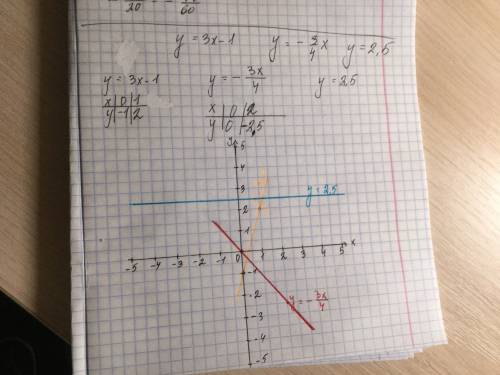 20 60
y = 3x - 1 y = - 3/4 x y = 2,5
y = 3x - 1 y = - 3x/4 y = 2,5
x | 0 | 1 x | 0 | 2
y | -1 | 2 y | 0 | -2,5
y
5
4
3
y = 2,5
2
1
x
-5 -4 -3 -2 -1 0 1 2 3 4 5
-1
-2
y = - 3x/4
-3
-4
-5